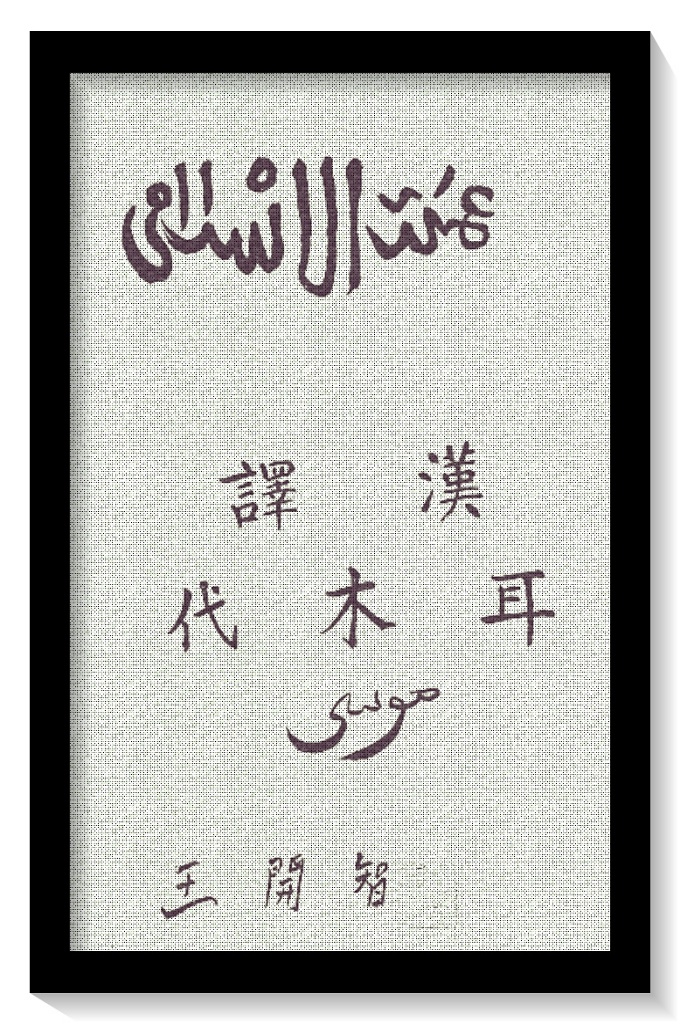 عمدة الاسلام
漢譯
耳木代
موسى
王開智